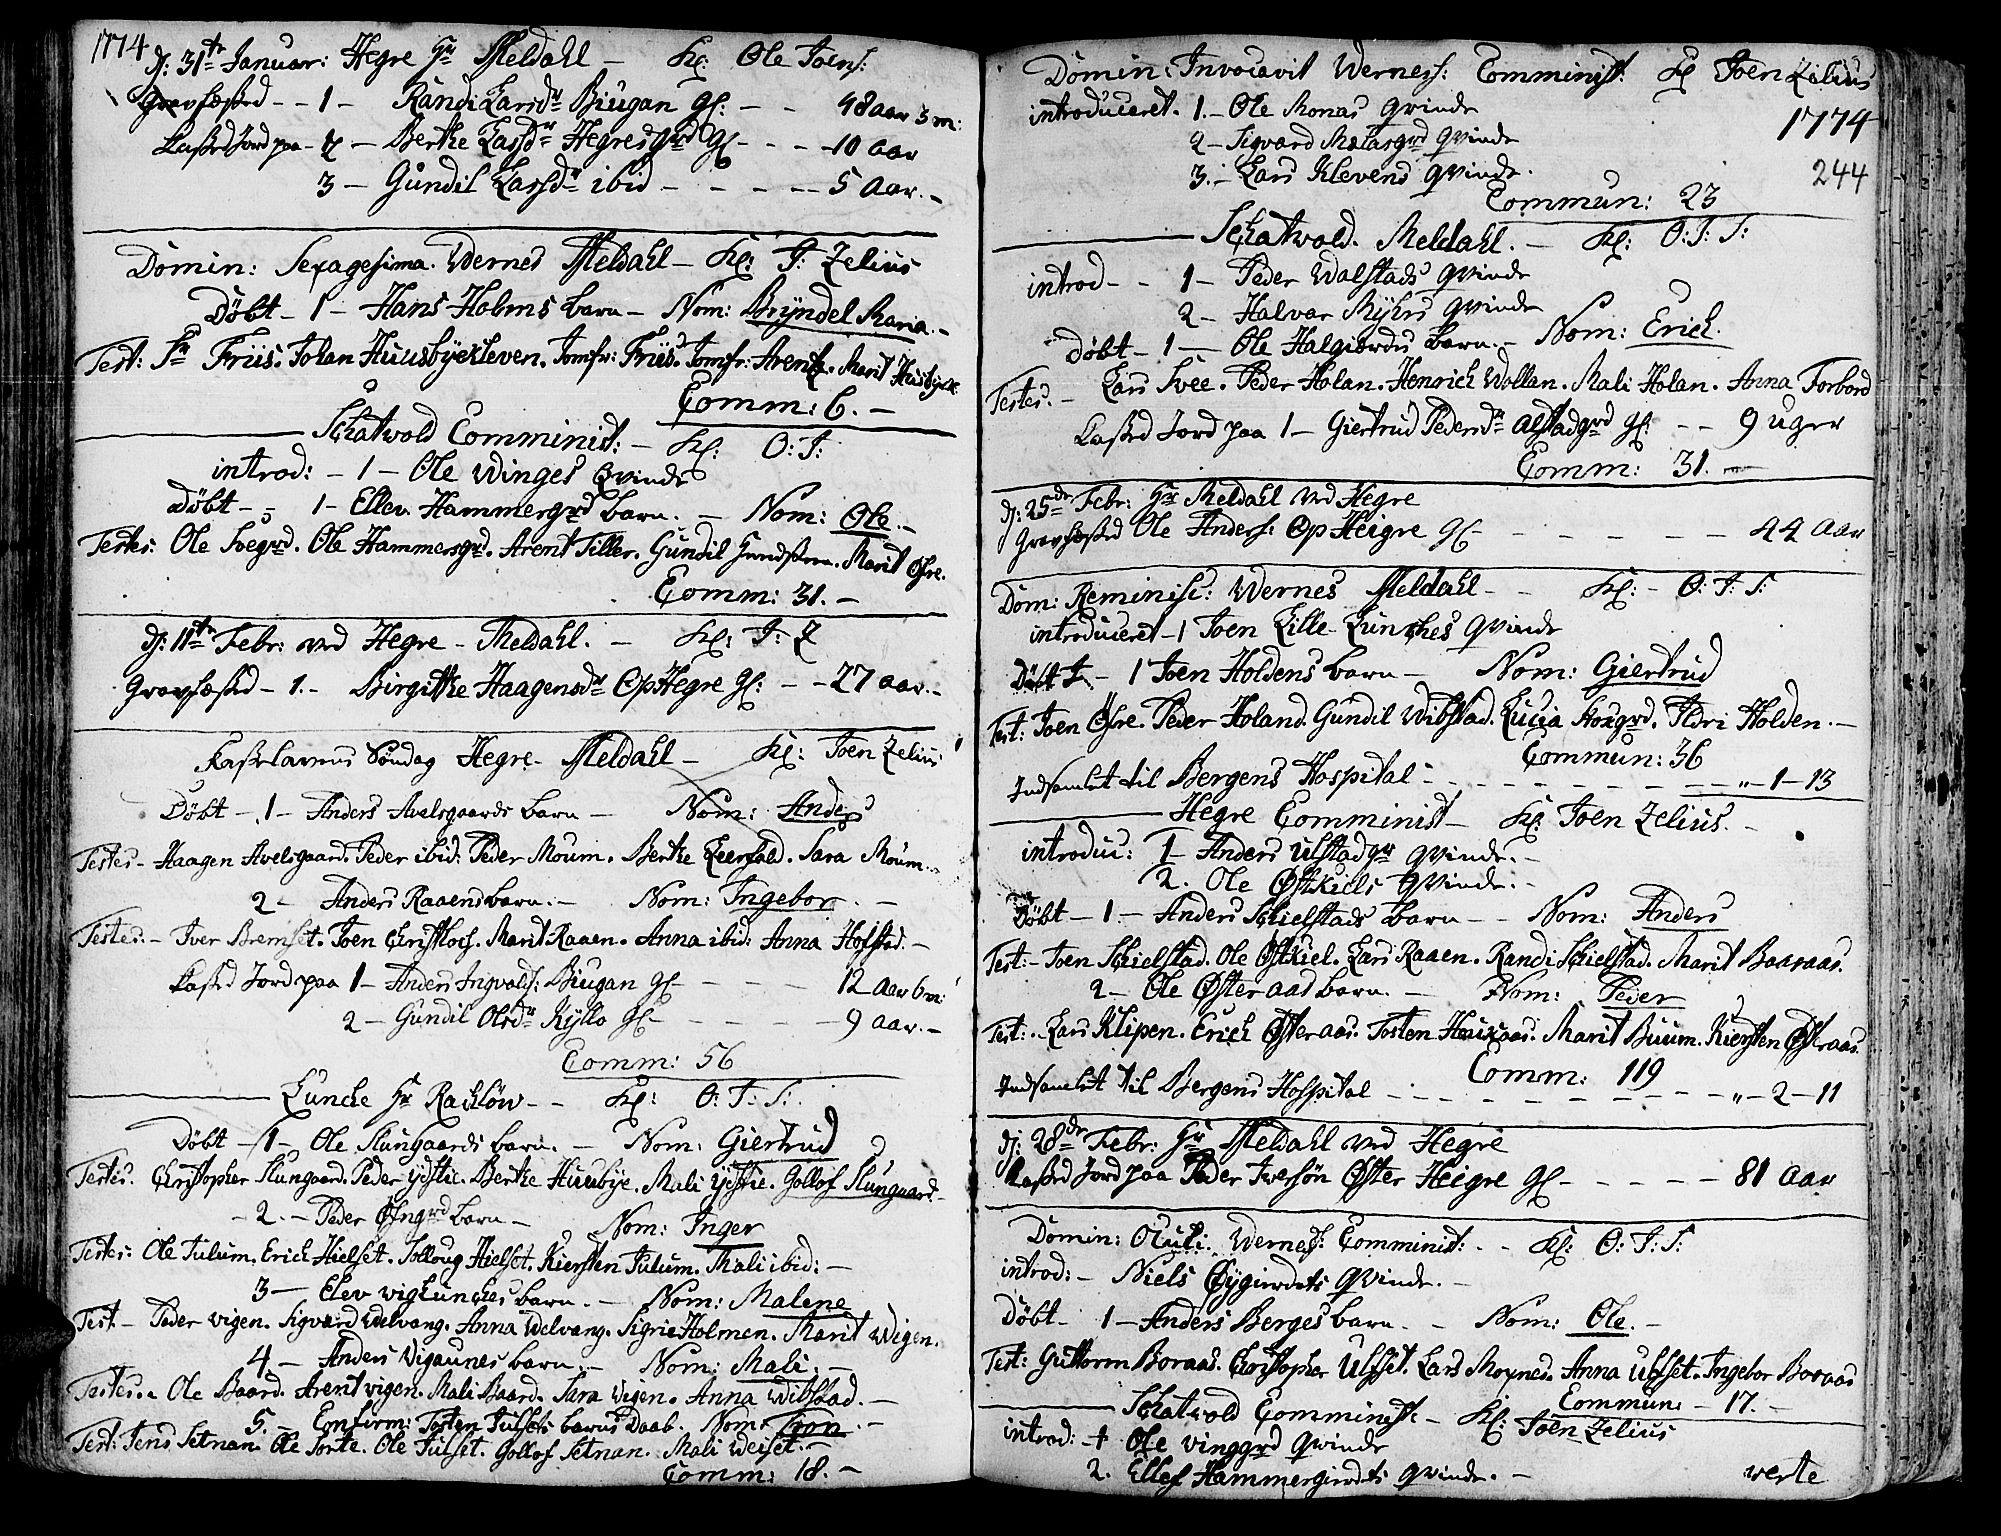 1774
d: 31te Januar: Hegre Hr Meldahl – Kl: Ole Joens:
Gravfæsted – – 1 – Randi Larsdr Biugan gl: – – 48 aar 3 m:
Kasted Jord paa – 2 – Berthe Larsdr Hegresgrd gl – – – 10 aar
3 – Gundil Larsdr ibid – – – – 5 Aar. –
Domin: Sexagesima. Wernes Meldahl – Kl: J: Zelius
Døbt – 1 – Hans Holms barn – Nom: Bryndel Maria. –
Test: Sr Friis. Johan Huusbyekleven. Jomfr: Friis. Jomfr: Arentz. Marit Husbyekl
Comm: 6. –
Schatwold Comminist: – Kl: O: J:
introd: – 1 – Ole Winges Qvinde
Døbt – – 1 – Ellev Hammersgrd barn. – Nom: Ole. –
Testes: Ole Svegrd. Ole Hammersgrd. Arent Tiller. Gundil. Marit Øfre.
Comm: 31. –
d: 11te Febr: ved Hegre – Meldahl. – Kl: J: Z
Gravfæsted – 1. – Birgitthe Haagensdr OpHegre gl: – – 27 aar. –
Fastelavens Søndag Hegre – Meldahl – Kl: Joen Zelius
Døbt – 1 – Anders Avelsgaards barn – Nom: Anders
Testes – Haagen Avelsgaard. Peder ibid: Peder Moum. Berthe Leerfald. Sara Moum. –
2 – Anders Raaens barn. – Nom: Ingebor. –
Testes: – Iver Bremset. Joen Christloch. Marit Raaen. Anna ibid: Anna Hofstad. –
Kasted Jord paa 1 – Anders Ingvalds: Biugan gl – – – – 12 aar 6 m:
2 – Gundil Olsdr Kyllo gl – – – – – 9 aar. –
Comm: 56
Luncke Hr Rachløw – – Kl: O: J: S:.
Døbt – 1 – Ole Slungaards barn. – Nom: Giertrud
Testes. Christopher Slungaard. Peder ydstie. Berthe Huusbye. Mali ydstie. Gollof Slungaard –
– 2. – Peder Øfngrd barn – Nom: Inger
Testes: Ole Julum. Erich Hielset. Solloug Hielset. Kiersten Julum. Mali ibid: –
3 – Elev vigLunches barn. – Nom: Malene
Test – Peder vigen. Sigvard Welvang. Anna Welvang. Sigrie Holmen. Marit Wigen.
4 – Anders Vigaunes barn. – Nom: Mali. –
Testes. – Ole Baard. Arent vigen. Mali Baard. Sara Vigen. Anna Wibstad. –
5. – Confirm: Tosten Julsets barns Daab. Nom: Tron. –
Test: Jens Setnan. Ole Sorte. Ole Julset. Gollof Setnan. Mali Weiset. –
Comm: 18. –
Domin: Invocavit Werness: Comminist: Kl Joen Zelius
introduceret. 1. – Ole Monas Qvinde
1774
2 – Sigvard Mælasgrd Qvinde
244
3. – Lars Klevens Qvinde.
Commun: 23
Schatwold. Meldahl. – Kl: O: J: S:
introd – – 1 – Peder Walstads Qvinde
2 – Halvar Rykes Qvinde
Døbt – 1 – Ole Halgiørdes Barn. – Nom: Erich.
Testes. – Lars Svee. Peder Holan. Henrich Wollan. Mali Holan. Anna Forbord
Kasted Jord paa 1 – Giertrud Pedersdr Alstadgrd gl: – – 9 uger
Comm: 31. –
d: 25de Febr: Hr Meldahl ved Hegre
Gravfæsted Ole Anders: Op Heigre gl – – – – – – 44 Aar
Dom: Reminisc: Wernes Meldahl – – Kl: – O: J: S:
introduceret – 1 Joen Lille Lunches Qvinde
Døbt – 1 Joen Holdens barn – Nom: Giertrud
Test: Joen Øfre. Peder Holand. Gundil Wibstad. Lucia Hoxgrd. Ildri Holden. –
Commun: 36
Indsamlet til Bergens Hospital – – – – – – – – „ – 1 – 13
Hegre Comminist – Kl: Joen Zelius. –
introduc: 1 – Anders Ulstadgr Qvinde. –
2. Ole Østkiels Qvinde. –
Døbt – 1 – Anders Schielstads barn – – Nom: Anders
Test: – Joen Schielstad. Ole Østkiel. Lars Raaen. Randi Schielstad. Marit Baaraas.
2 – Ole Østeraas barn. – Nom: Peder
Test: – Lars Klipen. Erich Østeraas. Tosten Heiraas. Marit Buum. Kiersten Østraas.
Comm: 119
Indsamlet til Bergens Hospital – – – – – – – – „ – 2 – 11
d: 28de Febr: Hr Meldahl ved Hegre
Kasted Jord paa Peder Ivershøn Øster Heigre gl – – – – – 81 Aar
Domin: Oculi. Wernes: Comminist: – – Kl: O: J: S:
introd: – Niels Øygiærdets Qvinde. –
Døbt – 1 – Anders Berges barn. – Nom: Ole. –
Test: Guttorm Boraas. Christopher Ulset. Lars Moxnes. Anna Ulset. Ingebor Boraas
Commun: – 17. –
Schatwold Comminist: – Kl: Joen Zelius
introd: – 1 Ole vinggrd Qvinde
2. Ellef Hammergierdets Qvinde. –
verte